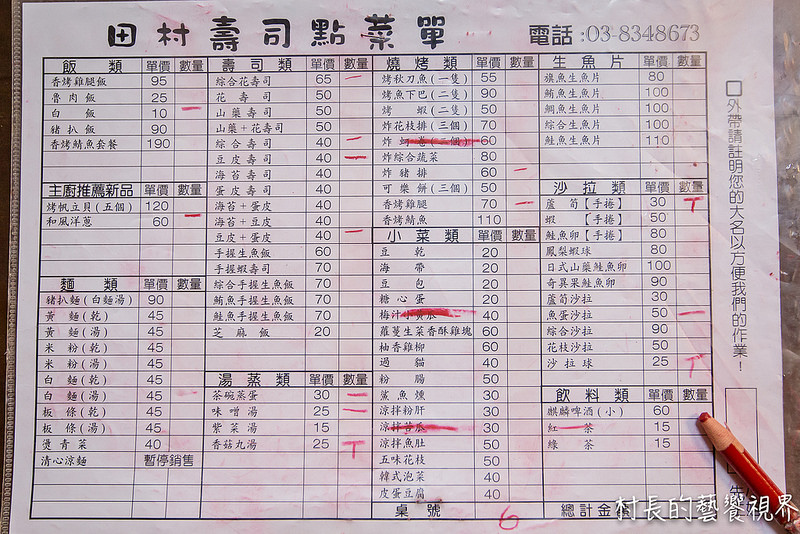 田村壽司點菜單
電話:03-8348673
飯類 單價 數量
香烤雞腿飯 95
魯肉飯 25
白飯 10
豬扒飯 90
香烤鯖魚套餐 190
主廚推薦新品 單價 數量
烤帆立貝(五個) 120
和風洋蔥 60
麵類 單價 數量
豬扒麵(白麵湯) 90
黃麵(乾) 45
黃麵(湯) 45
米粉(乾) 45
米粉(湯) 45
白麵(乾) 45
白麵(湯) 45
板條(乾) 45
板條(湯) 45
燙青菜 40
清心涼麵 暫停銷售
壽司類 單價 數量
綜合花壽司 65
花壽司 50
山藥壽司 50
山藥+花壽司 50
綜合壽司 40
豆皮壽司 40
海苔壽司 40
蛋皮壽司 40
海苔+蛋皮 40
海苔+豆皮 40
豆皮+蛋皮 40
手握生魚飯 60
手握蝦壽司 70
綜合手握生魚飯 70
鮪魚手握生魚飯 70
鮭魚手握生魚飯 70
芝麻飯 20
湯蒸類 單價 數量
茶碗蒸蛋 30
味噌湯 25
紫菜湯 15
香菇丸湯 25
燒烤類 單價 數量
烤秋刀魚(一隻) 55
烤魚下巴(二隻) 90
烤蝦(二隻) 50
炸花枝排(三個) 70
炸蚵卷(三個) 60
炸綜合蔬菜 80
炸豬排 60
可樂餅(三個) 50
香烤雞腿 70
香烤鯖魚 110
小菜類 單價 數量
豆乾 20
海帶 20
豆包 20
糖心蛋 20
梅汁小黃瓜 40
蘿蔓生菜香酥雞塊 60
柚香雞柳 60
過貓 40
粉腸 50
鯊魚燻 30
涼拌粉肝 30
涼拌苦瓜 30
涼拌魚肚 50
五味花枝 50
韓式泡菜 40
皮蛋豆腐 40
桌號 6
生魚片 單價 數量
旗魚生魚片 80
鮪魚生魚片 100
鯛魚生魚片 100
綜合生魚片 100
鮭魚生魚片 110
沙拉類 單價 數量
蘆筍【手捲】 30
蝦【手捲】 50
鮭魚卵【手捲】 80
鳳梨蝦球 80
日式山藥鮭魚卵 100
奇異果鮭魚卵 90
蘆筍沙拉 30
魚蛋沙拉 50
綜合沙拉 90
花枝沙拉 50
沙拉球 25
飲料類 單價 數量
麒麟啤酒(小) 60
紅茶 15
綠茶 15
總計金額
□外帶請註明您的大名以方便我們的作業!
先
村長的藝饗視界